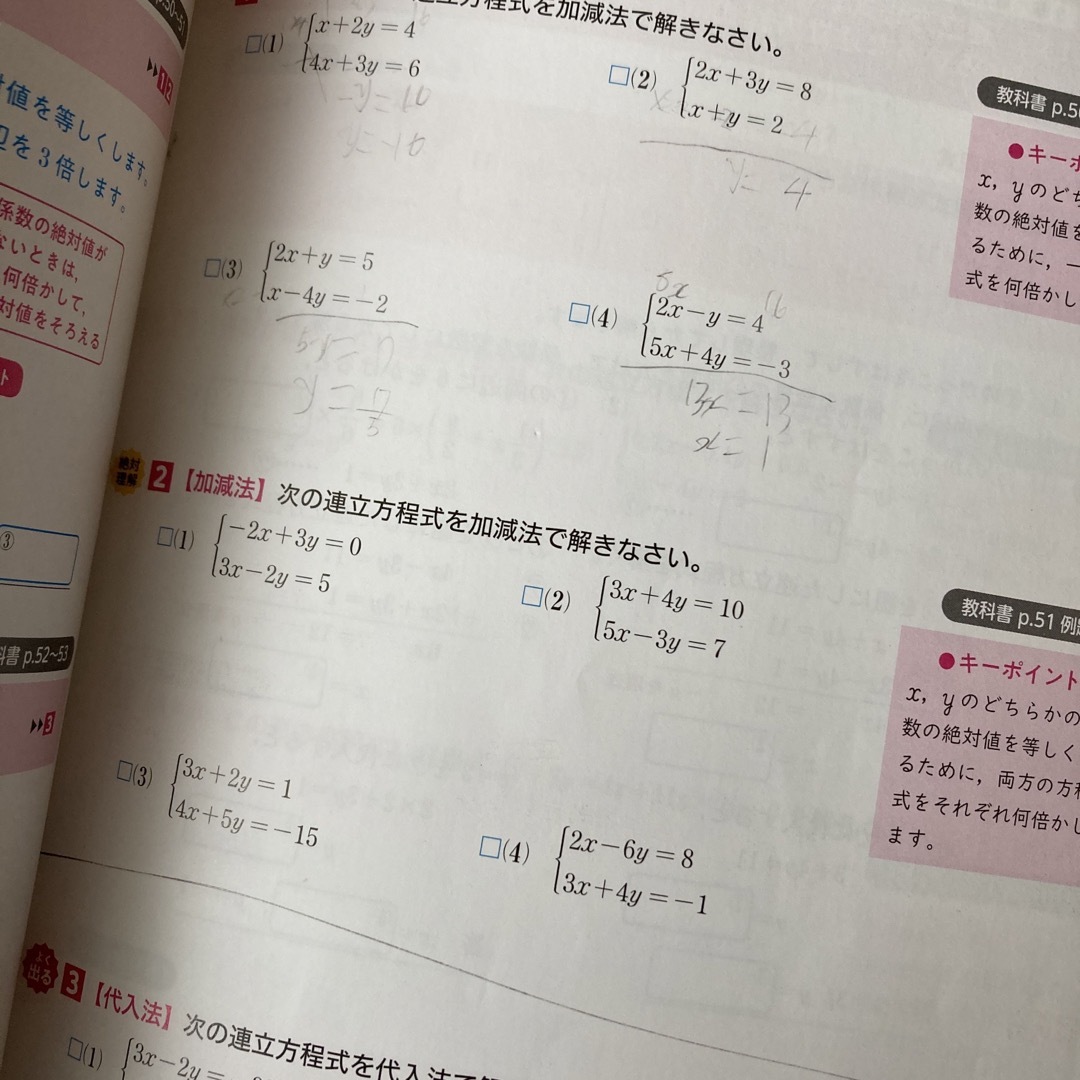 p.50~51
▶▶12
値を等しくします。
を3倍します。
係数の絶対値が
ないときは,
何倍かして,
対値をそろえる
ント
③
科書 p.52~53
▶▶3
立方程式を加減法で解きなさい。
□(1) x+2y=4
4x+3y=6
-y=10
y=-10
□(2) 2x+3y=8
x+y=2
4
y= 4
□(3) 2x+y=5
x-4y=-2
y=
5
□(4) 2x-y=4
5x+4y=-3
5x
16
13x=13
x=1
教科書 p.50
●キーポ
x, yのどち
数の絶対値を
るために, 一
式を何倍かし
絶対理解 2 【加減法】 次の連立方程式を加減法で解きなさい。
□(1) -2x+3y=0
3x-2y=5
□(2) 3x+4y=10
5x-3y=7
□(3) 3x+2y=1
4x+5y=-15
□(4) 2x-6y=8
3x+4y=-1
教科書 p.51 例題
●キーポイント
x, yのどちらかの
数の絶対値を等しく
るために, 両方の方程
式をそれぞれ何倍かし
ます。
よく出る 3 【代入法】 次の連立方程式を代入法で
□(1) 3x-2y=